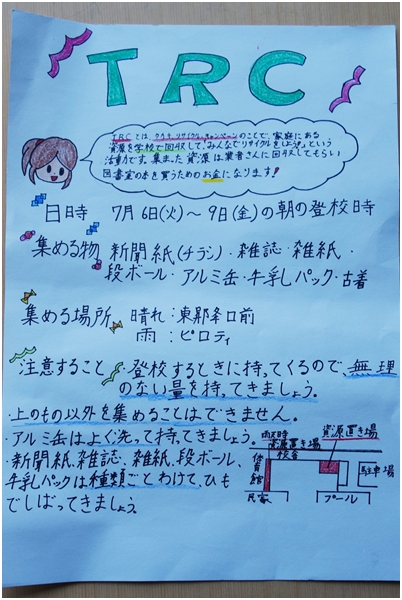 TRC
TRCとは、タウチ リサイクル キャンペーンのことで、家庭にある
資源を学校で回収して、「みんなでリサイクルをしよう。」という
活動です。集まった資源は業者さんに回収してもらい
図書室の本を買うためのお金になります!
日時 7月6日(火)~9日(金)の朝の登校時
集める物 新聞紙(チラシ)・雑誌・雑紙・
段ボール・アルミ缶・牛乳パック・古着
集める場所 晴れ:東昇降口前
雨:ピロティ
注意すること ・登校するときに持ってくるので、無理
のない量を持ってきましょう。
・上のもの以外を集めることはできません。
・アルミ缶はよく洗って持ってきましょう。
・新聞紙、雑誌、雑紙、段ボール、
牛乳パックは種類ごとわけて、ひも
でしばってきましょう
雨天時
資源置き場
資源置き場
校舎
体育館
駐車場
民家
プール